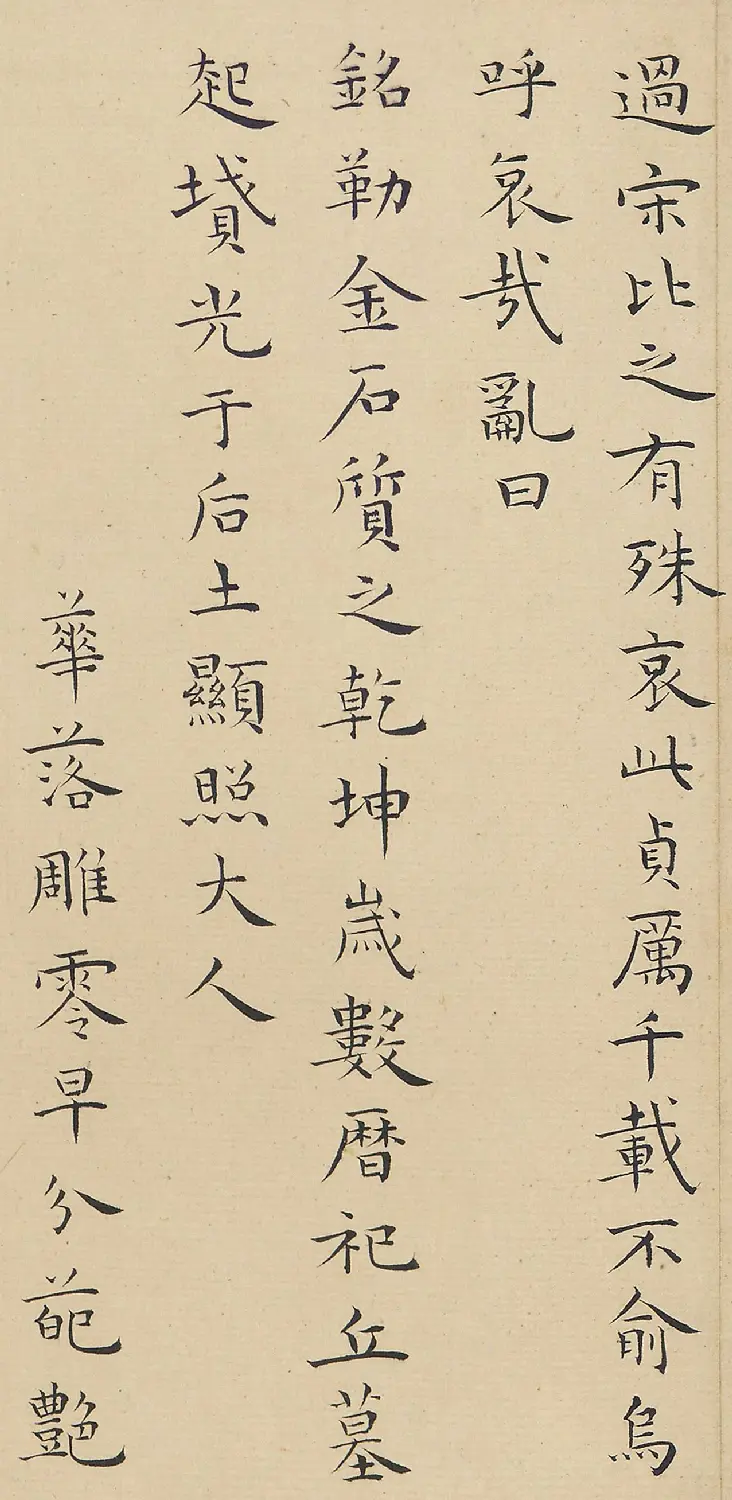 過宋比之有殊哀此貞厲千載不俞烏
呼哀哉亂曰
銘勒金石質之乾坤歲數暦祀丘墓
起墳光于后土顯照大人
華落雕零早分葩艶